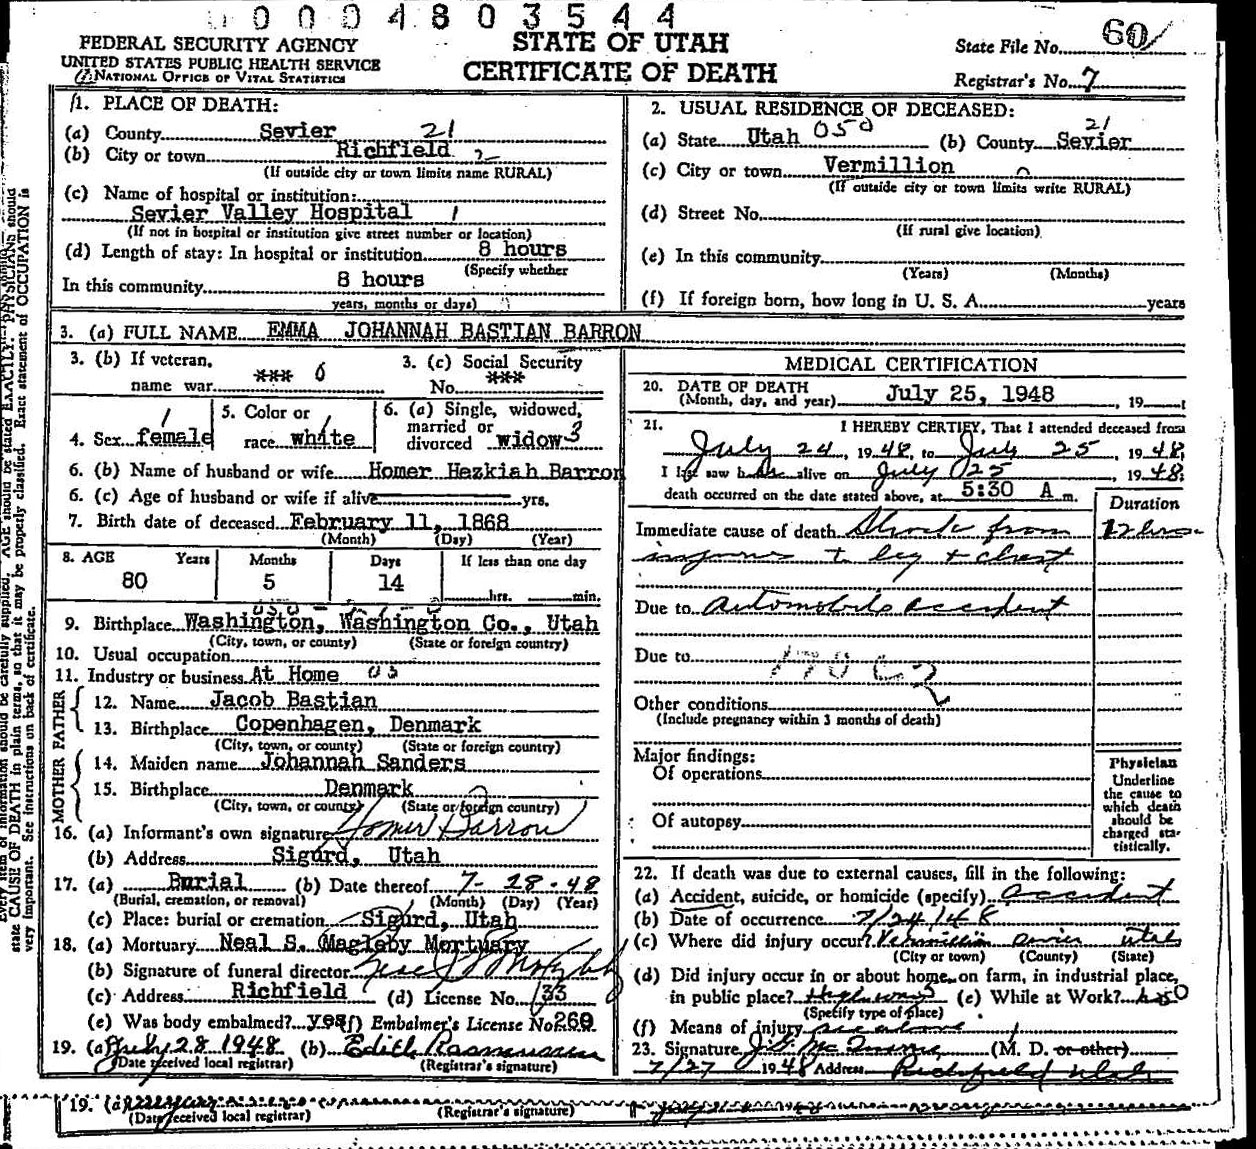 0 0 0 4 8 0 3 5 4 4
FEDERAL SECURITY AGENCY
UNITED STATES PUBLIC HEALTH SERVICE
NATIONAL OFFICE OF VITAL STATISTICS
STATE OF UTAH
CERTIFICATE OF DEATH
State File No. 60
Registrar's No. 7
1. PLACE OF DEATH:
(a) County Sevier 21
(b) City or town Richfield 2
(If outside city or town limits name RURAL)
(c) Name of hospital or institution:
Sevier Valley Hospital 1
(If not in hospital or institution give street number or location)
(d) Length of stay: In hospital or institution 8 hours
(Specify whether
In this community 8 hours
years, months or days)
2. USUAL RESIDENCE OF DECEASED:
(a) State Utah 050 (b) County Sevier 21
(c) City or town Vermillion 0
(If outside city or town limits write RURAL)
(d) Street No.
(If rural give location)
(e) In this community
(Years) (Months)
(f) If foreign born, how long in U. S. A. years
3. (a) FULL NAME EMMA JOHANNAH BASTIAN BARRON
3. (b) If veteran, name war *** 6
3. (c) Social Security No. ***
4. Sex female 1
5. Color or race white 1
6. (a) Single, widowed, married or divorced widow 3
6. (b) Name of husband or wife Homer Hezkiah Barron
6. (c) Age of husband or wife if alive yrs.
7. Birth date of deceased February 11, 1868
(Month) (Day) (Year)
8. AGE Years Months Days If less than one day
80 5 14 hrs. min.
9. Birthplace Washington, Washington Co., Utah
(City, town, or county) (State or foreign country)
10. Usual occupation
11. Industry or business At Home
FATHER
12. Name Jacob Bastian
13. Birthplace Copenhagen, Denmark
(City, town, or county) (State or foreign country)
MOTHER
14. Maiden name Johannah Sanders
15. Birthplace Denmark
(City, town, or county) (State or foreign country)
16. (a) Informant's own signature Homer Barron
(b) Address Sigurd, Utah
17. (a) Burial (b) Date thereof 7-28-48
(Burial, cremation, or removal) (Month) (Day) (Year)
(c) Place: burial or cremation Sigurd, Utah
18. (a) Mortuary Neal S. Magleby Mortuary
(b) Signature of funeral director Neal S. Magleby
(c) Address Richfield (d) License No. 133
(e) Was body embalmed? yes (f) Embalmer's License No. 260
19. (a) July 28 1948 (b) Edith Rasmussen
(Date received local registrar) (Registrar's signature)
MEDICAL CERTIFICATION
20. DATE OF DEATH
(Month, day, and year) July 25, 1948, 19
21. I HEREBY CERTIFY, That I attended deceased from
July 24, 1948, to July 25, 1948;
I last saw her alive on July 25 1948;
death occurred on the date stated above, at 5:30 A m.
Duration
Immediate cause of death Shock from 12 hrs-
injuries to leg + chest
Due to Automobile accident
Due to
Other conditions
(Include pregnancy within 3 months of death)
Major findings:
Of operations
Of autopsy
Physician
Underline
the cause to
which death
should be
charged sta-
tistically.
22. If death was due to external causes, fill in the following:
(a) Accident, suicide, or homicide (specify) accident
(b) Date of occurrence 7/24/48
(c) Where did injury occur? Vermillion Sevier Utah
(City or town) (County) (State)
(d) Did injury occur in or about home, on farm, in industrial place,
in public place? Highway (e) While at Work? no
(Specify type of place)
(f) Means of injury
23. Signature (M. D. or other)
7/27 1948 Address Richfield Utah
19. (a)
(Date received local registrar) (Registrar's signature)
state CAUSE OF DEATH in plain terms, so that it may be properly classified. Exact statement of OCCUPATION is
very important. See instructions on back of certificate.